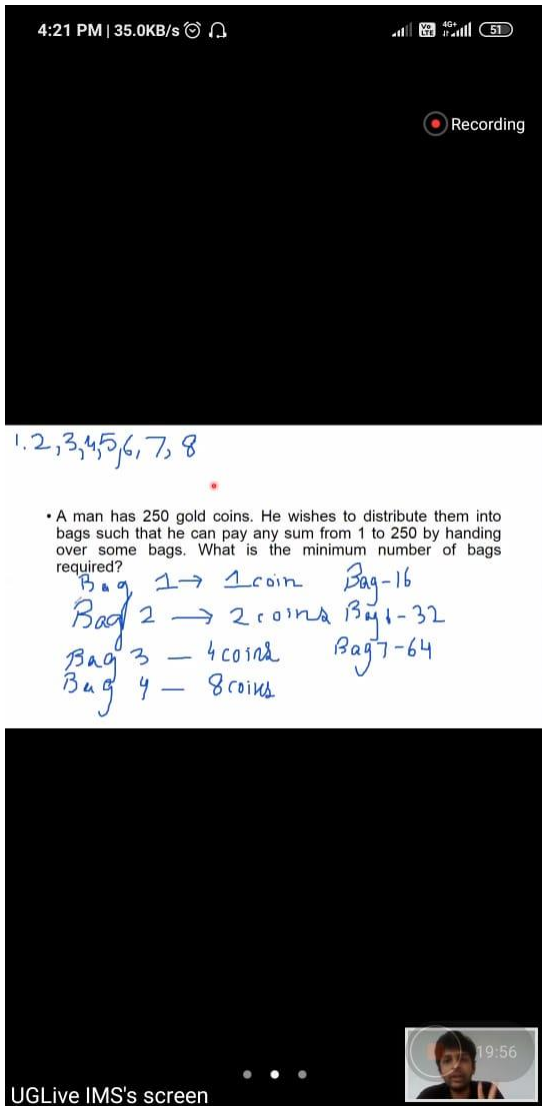 4:21 PM | 35.0KB/s
Vo LTE 4G+ 51
Recording
1.2,3,4,5,6,7,8
• A man has 250 gold coins. He wishes to distribute them into
bags such that he can pay any sum from 1 to 250 by handing
over some bags. What is the minimum number of bags
required?
Bag 1→ 1coin Bag-16
Bag 2 → 2coins Bag6-32
Bag 3 – 4coins Bag7-64
Bag 4 – 8coins
19:56
UGLive IMS's screen